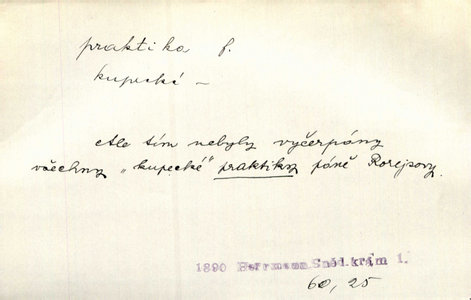 praktika f.
kupecké –
Ale tím nebyly vyčerpány
všechny „kupecké“ praktiky páně Rorejsovy.
1890 Herrmann Sněd. krám 1.
60, 25